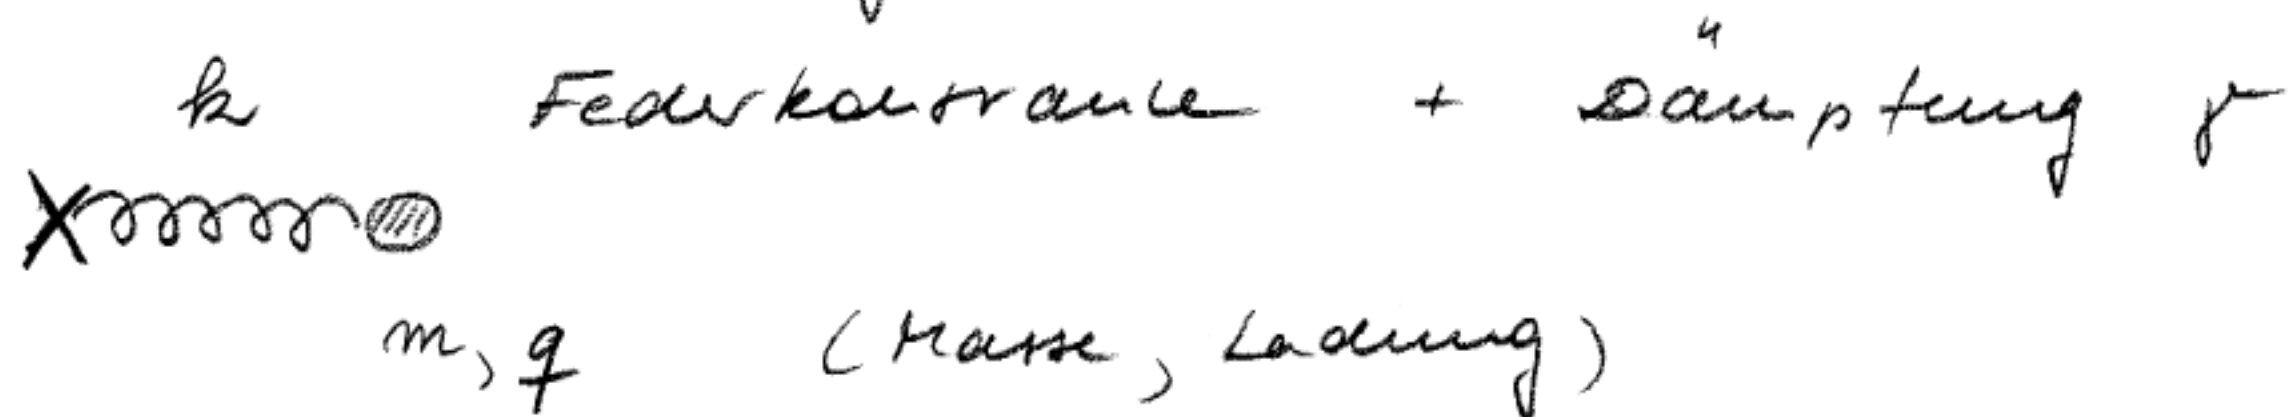 k Federkonstante + Dämpfung γ
m, q (Masse, Ladung)